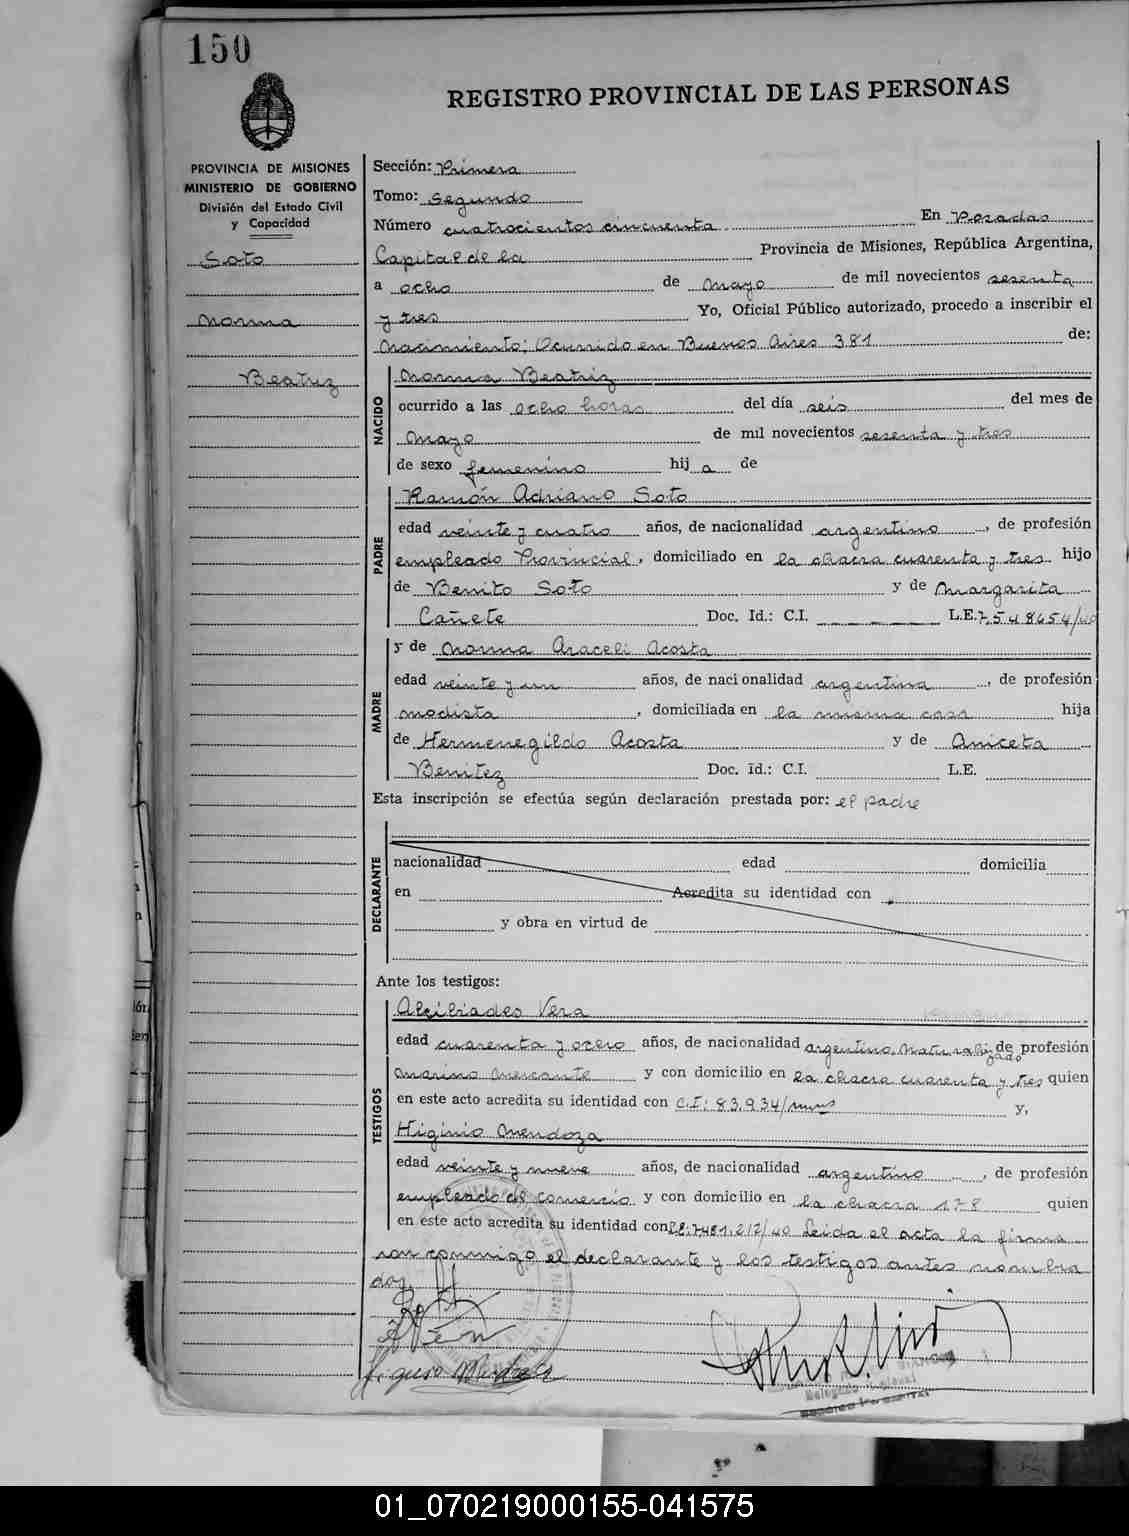 150
REGISTRO PROVINCIAL DE LAS PERSONAS
PROVINCIA DE MISIONES
MINISTERIO DE GOBIERNO
División del Estado Civil
y Capacidad
Soto
Norma
Beatriz
Sección: Primera
Tomo: Segundo
Número cuatrocientos cincuenta En Posadas
Capital de la Provincia de Misiones, República Argentina,
a ocho de mayo de mil novecientos sesenta
y tres Yo, Oficial Público autorizado, procedo a inscribir el
Nacimiento; Ocurrido en Buenos Aires 381 de:
NACIDO
Norma Beatriz
ocurrido a las ocho horas del día seis del mes de
Mayo de mil novecientos sesenta y tres
de sexo femenino hij a de
PADRE
Ramón Adriano Soto
edad veinte y cuatro años, de nacionalidad argentino, de profesión
empleado Provincial, domiciliado en la chacra cuarenta y tres hijo
de Benito Soto y de Margarita
Cañete Doc. Id.: C.I. L.E. 7.548654/40
MADRE
y de Norma Araceli Acosta
edad veinte y un años, de nacionalidad argentina, de profesión
modista, domiciliada en la misma casa hija
de Hermenegildo Acosta y de Aniceta
Benitez Doc. Id.: C.I. L.E.
Esta inscripción se efectúa según declaración prestada por: el padre
DECLARANTE
nacionalidad edad domicilia
en Acredita su identidad con
y obra en virtud de
Ante los testigos:
TESTIGOS
Alcibiades Vera
edad cuarenta y ocho años, de nacionalidad argentino, naturalizado de profesión
Marino Mercante y con domicilio en la chacra cuarenta y tres quien
en este acto acredita su identidad con C.I: 83.934/mnes y,
Higinio Mendoza
edad veinte y nueve años, de nacionalidad argentino, de profesión
empleado de comercio y con domicilio en la chacra 178 quien
en este acto acredita su identidad con LE: 7481.212/40 Leida el acta la firma
con conmigo el declarante y los testigos antes nombra
dos.
01_070219000155-041575